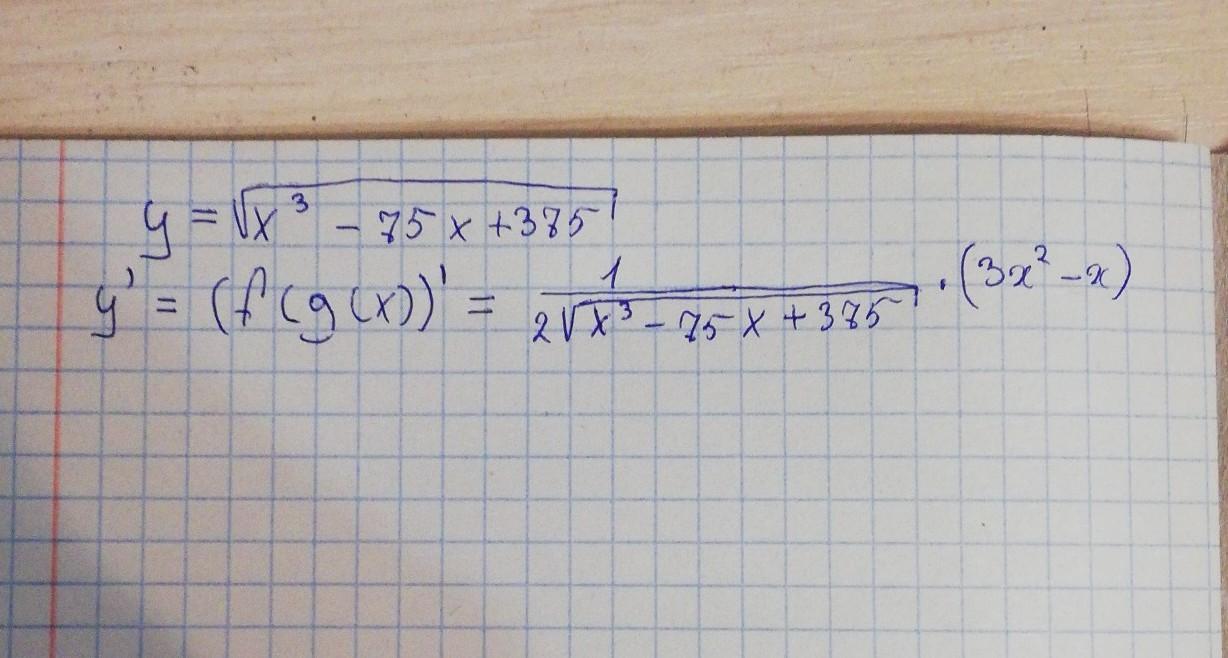 y = √(x³ - 75x +375)
y' = (f(g(x))' = 1/(2√(x³ - 75x + 375)) · (3x² - x)